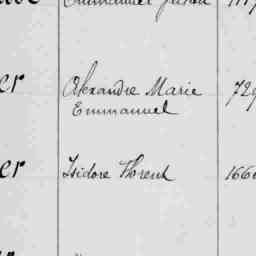 Emmanuel
er Alexandre Marie 729
Emmanuel
er Isidore Florent 1666